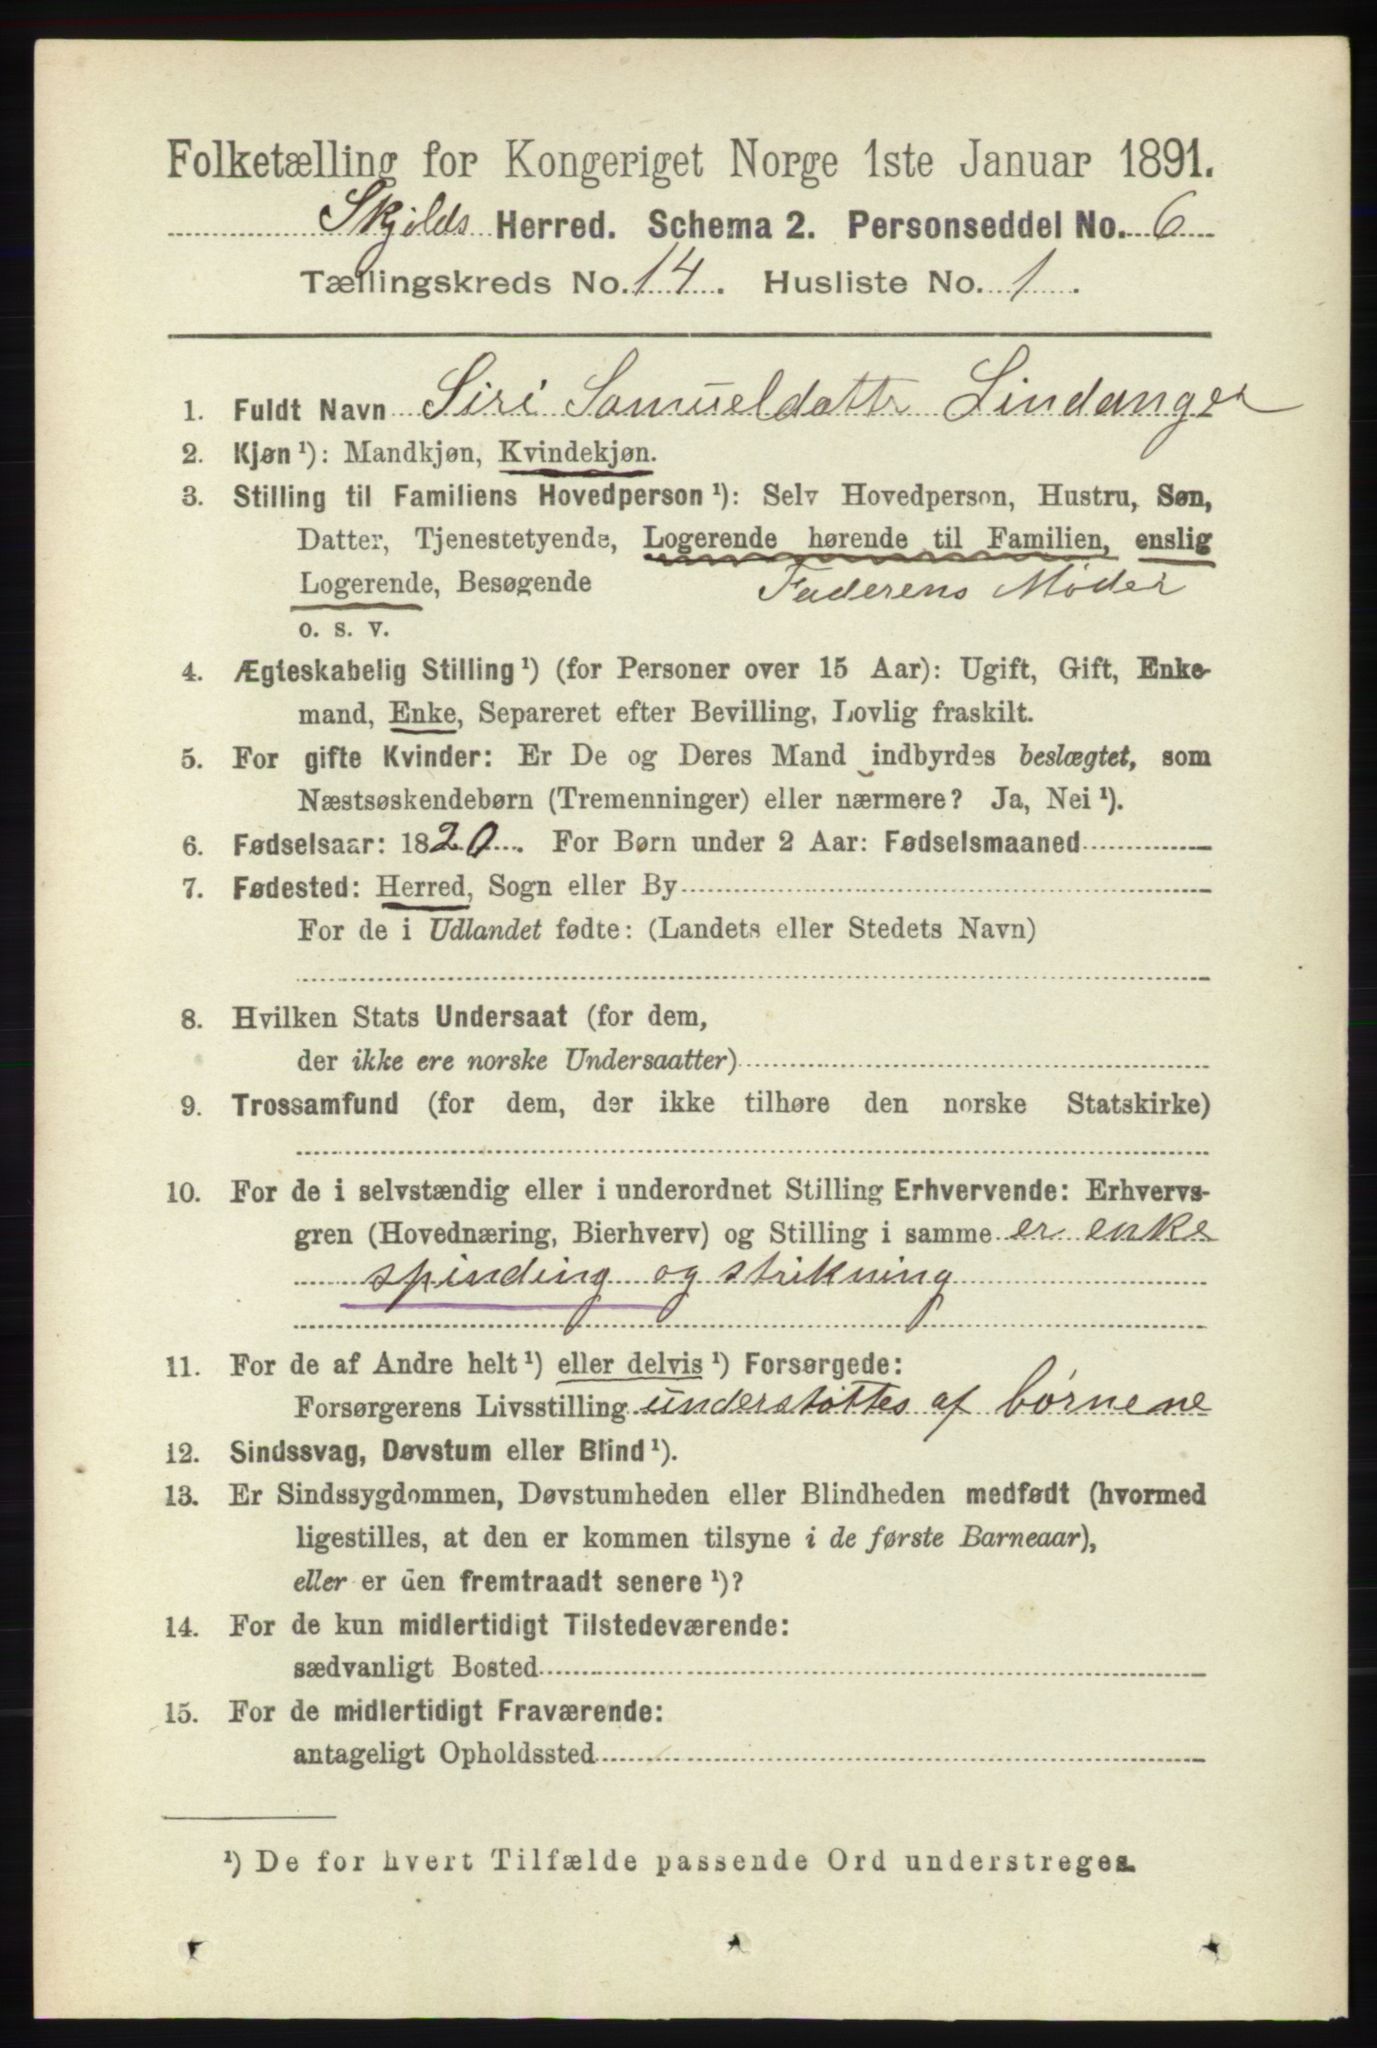 Folketælling for Kongeriget Norge 1ste Januar 1891.
Skjolds Herred. Schema 2. Personseddel No. 6
Tællingskreds No. 14. Husliste No. 1.
1. Fuldt Navn Siri Samueldatter Lindanger
2. Kjøn ¹): Mandkjøn, Kvindekjøn.
3. Stilling til Familiens Hovedperson ¹): Selv Hovedperson, Hustru, Søn,
Datter, Tjenestetyende, Logerende hørende til Familien, enslig
Logerende, Besøgende Faderens Moder
o. s. v.
4. Ægteskabelig Stilling ¹) (for Personer over 15 Aar): Ugift, Gift, Enke-
mand, Enke, Separeret efter Bevilling, Lovlig fraskilt.
5. For gifte Kvinder: Er De og Deres Mand indbyrdes beslægtet, som
Næstsøskendebørn (Tremenninger) eller nærmere? Ja, Nei ¹).
6. Fødselsaar: 1820. For Børn under 2 Aar: Fødselsmaaned
7. Fødested: Herred, Sogn eller By
For de i Udlandet fødte: (Landets eller Stedets Navn)
8. Hvilken Stats Undersaat (for dem,
der ikke ere norske Undersaatter)
9. Trossamfund (for dem, der ikke tilhøre den norske Statskirke)
10. For de i selvstændig eller i underordnet Stilling Erhvervende: Erhvervs-
gren (Hovednæring, Bierhverv) og Stilling i samme er enke
spinding og strikning
11. For de af Andre helt ¹) eller delvis ¹) Forsørgede:
Forsørgerens Livsstilling understøttes af børnene
12. Sindssvag, Døvstum eller Blind ¹).
13. Er Sindssygdommen, Døvstumheden eller Blindheden medfødt (hvormed
ligestilles, at den er kommen tilsyne i de første Barneaar),
eller er den fremtraadt senere ¹)?
14. For de kun midlertidigt Tilstedeværende:
sædvanligt Bosted
15. For de midlertidigt Fraværende:
antageligt Opholdssted
¹) De for hvert Tilfælde passende Ord understreges.